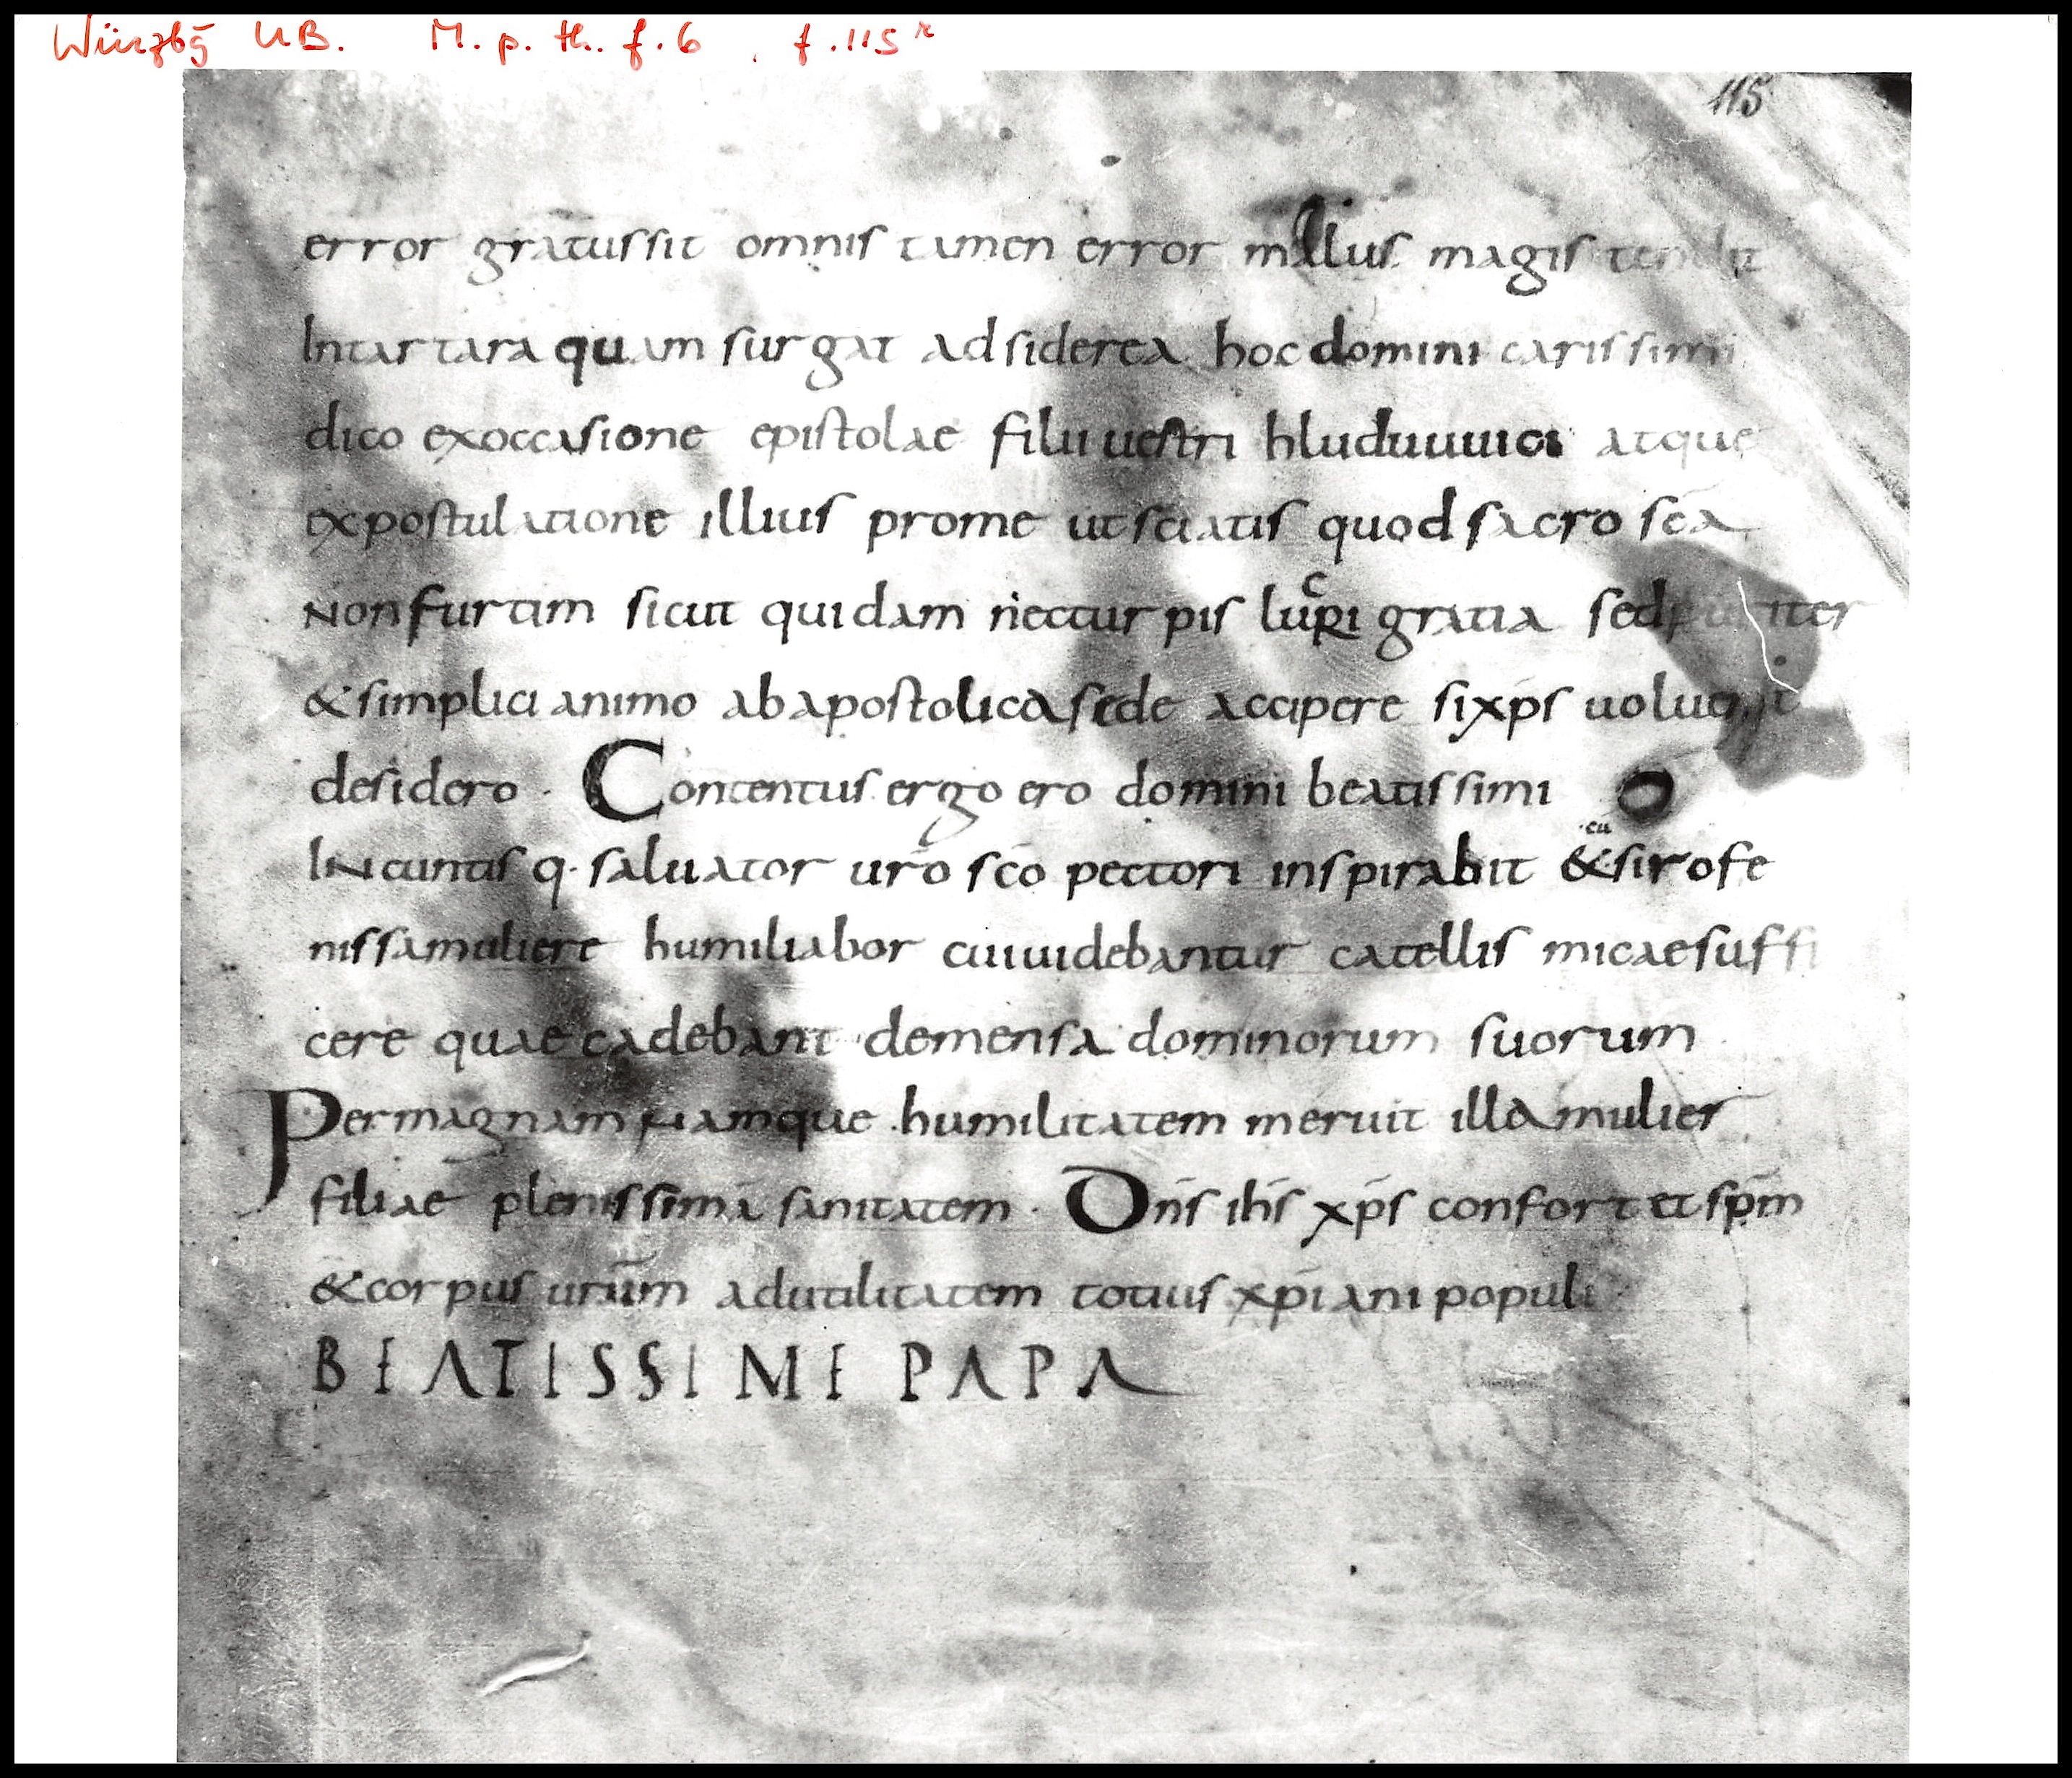 Würzbg UB. M. p. th. f. 6, f. 115r
115
error gratus sit omnis tamen error illius magis tendit
Intartara quam surgat adsiderea hoc domini carissimi
dico exoccasione epistolae filii uestri hluduuuici atque
expostulatione illius prome utsciatis quod sacro sc̄a
Nonfurtim sicut quidam nec turpis lucri gratia sed iter
&simplici animo abapostolica sede accipere si xp̄s uoluerit
desidero · Contentus ergo ero domini beatissimi
INcunctis q· saluator ur̄o sc̄o pectori inspirabit & cū sirofe
nissamuliere humiliabor cuiuidebantur catellis micae suffi
cere quae cadebant demensa dominorum suorum
Permagnam Namque humilitatem meruit illa mulier
filiae plenissimā sanitatem · Dn̄s ih̄s xp̄s confortet sp̄m
&corpus urūm adutilitatem totius xp̄iani populi
BEATISSIME PAPA